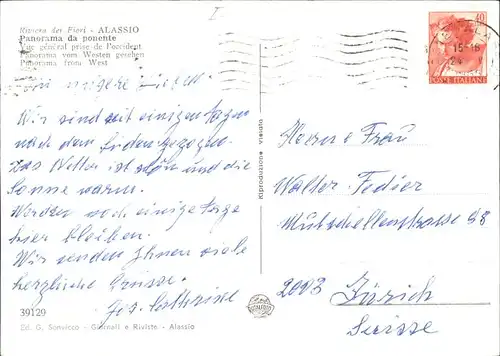 Riviera dei Fiori - ALASSIO
Panorama da ponente
Vue général prise de l'occident
Panorama vom Westen gesehen
Panorama from West
Wir sind seit einigen Tagen
nach dem Süden gezogen.
Das Wetter ist schön und die
Sonne warm.
Werden noch einige Tage
hier bleiben.
Wir senden Ihnen viele
herzliche Grüsse.
39129
Ed. G. Sonvico - Giornali e Riviste - Alassio
Riproduzione vietata
40
POSTE ITALIANE
Herrn & Frau
Walter Fedier
Mutschellenstrasse 58
2003 Zürich
Suisse